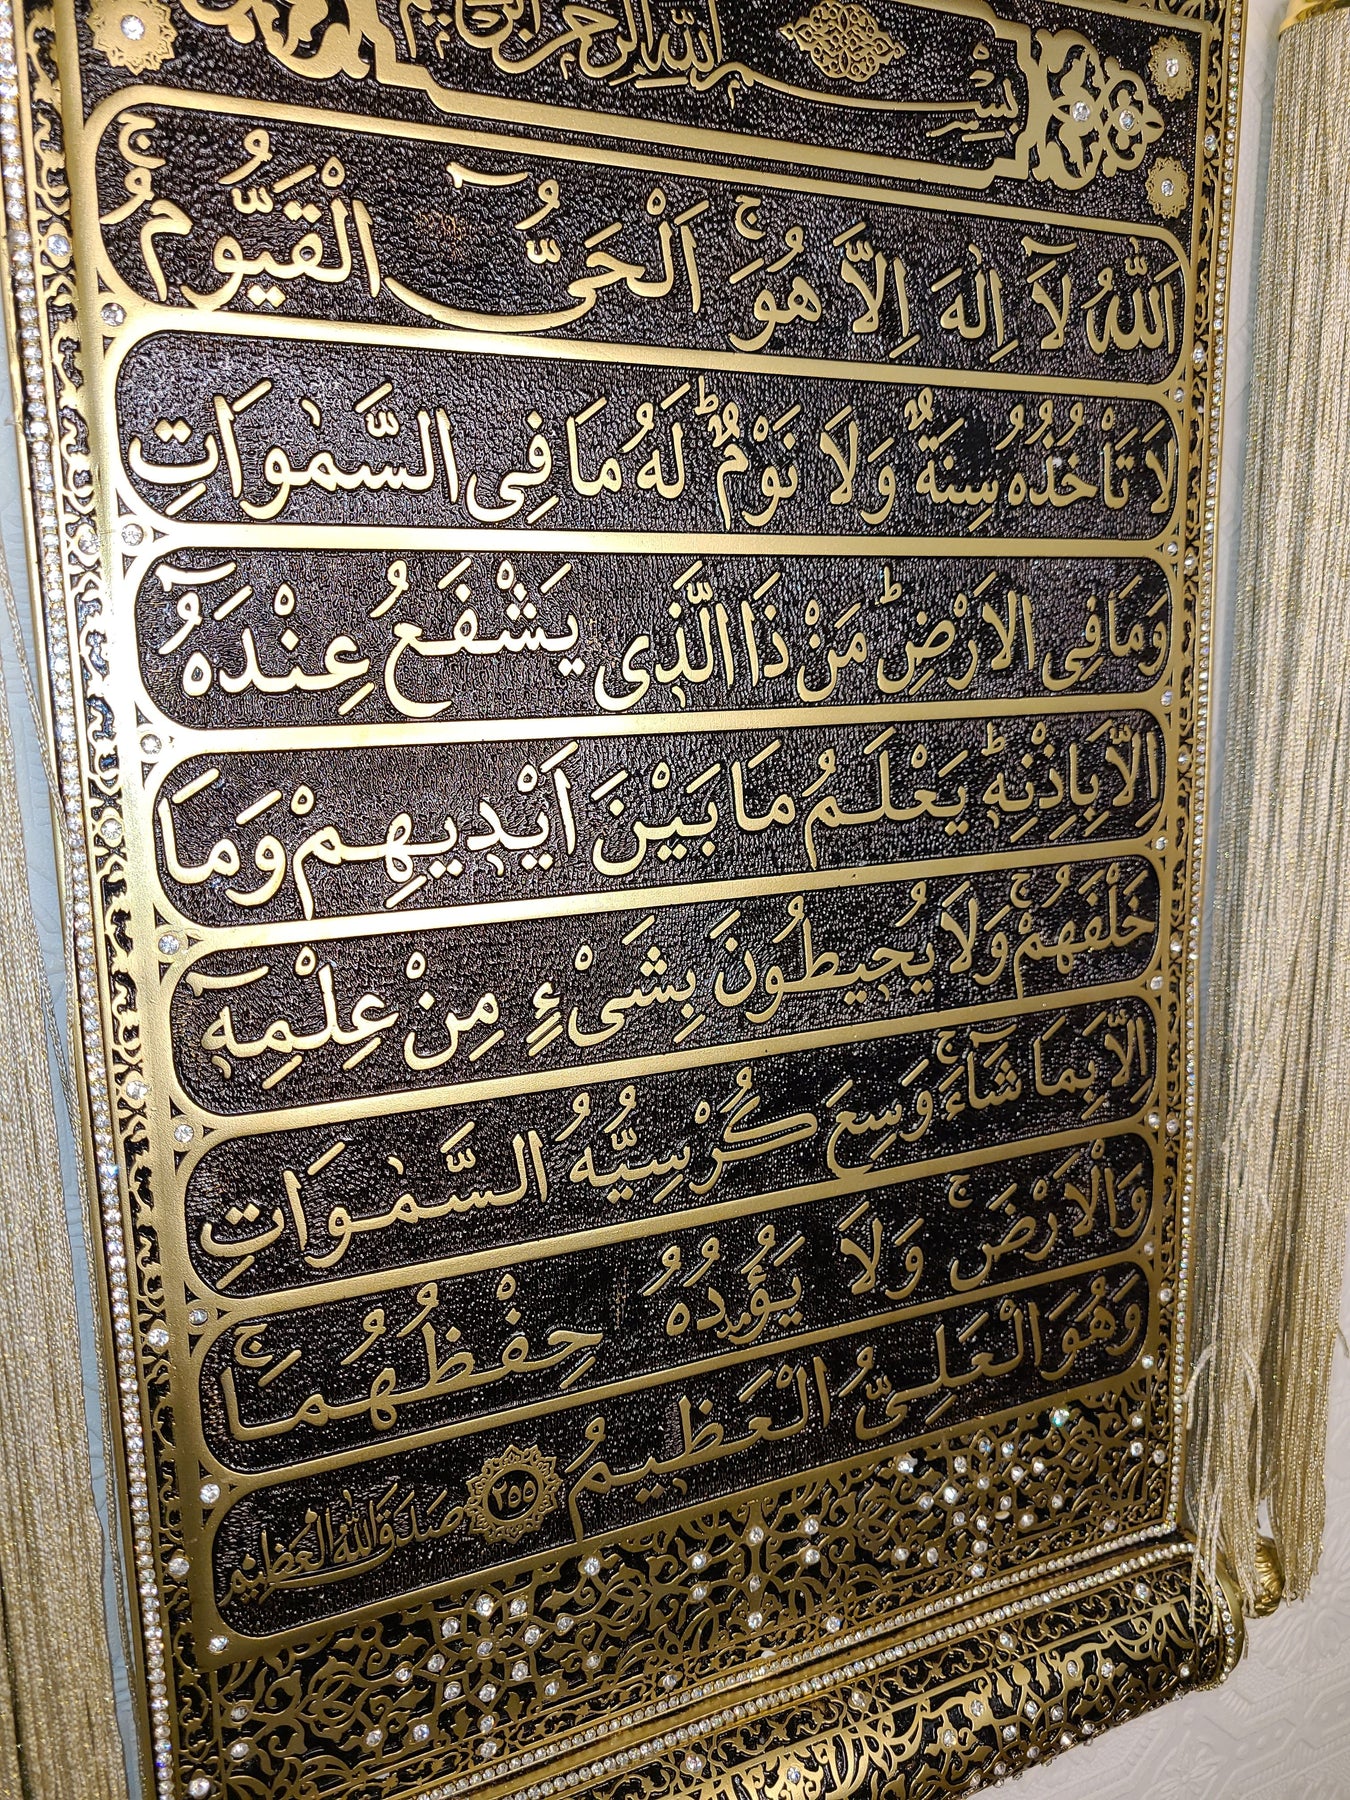 بِسْمِ اللّٰهِ الرَّحْمٰنِ الرَّحِيمِ
اَللّٰهُ لَآ اِلٰهَ اِلَّا هُوَۚ اَلْحَيُّ الْقَيُّومُۚ
لَا تَأْخُذُهُ سِنَةٌ وَلَا نَوْمٌۜ لَهُ مَا فِى السَّمٰوَاتِ
وَمَا فِى الْاَرْضِۜ مَنْ ذَا الَّذِى يَشْفَعُ عِنْدَهُٓ
اِلَّا بِاِذْنِهِۜ يَعْلَمُ مَا بَيْنَ اَيْدِيهِمْ وَمَا
خَلْفَهُمْۚ وَلَا يُحِيطُونَ بِشَىْءٍ مِنْ عِلْمِهِٓ
اِلَّا بِمَا شَآءَۚ وَسِعَ كُرْسِيُّهُ السَّمٰوَاتِ
وَالْاَرْضَۚ وَلَا يَؤُدُهُ حِفْظُهُمَاۚ
وَهُوَ الْعَلِىُّ الْعَظِيمُ ٢٥٥ صَدَقَ اللّٰهُ الْعَظِيم